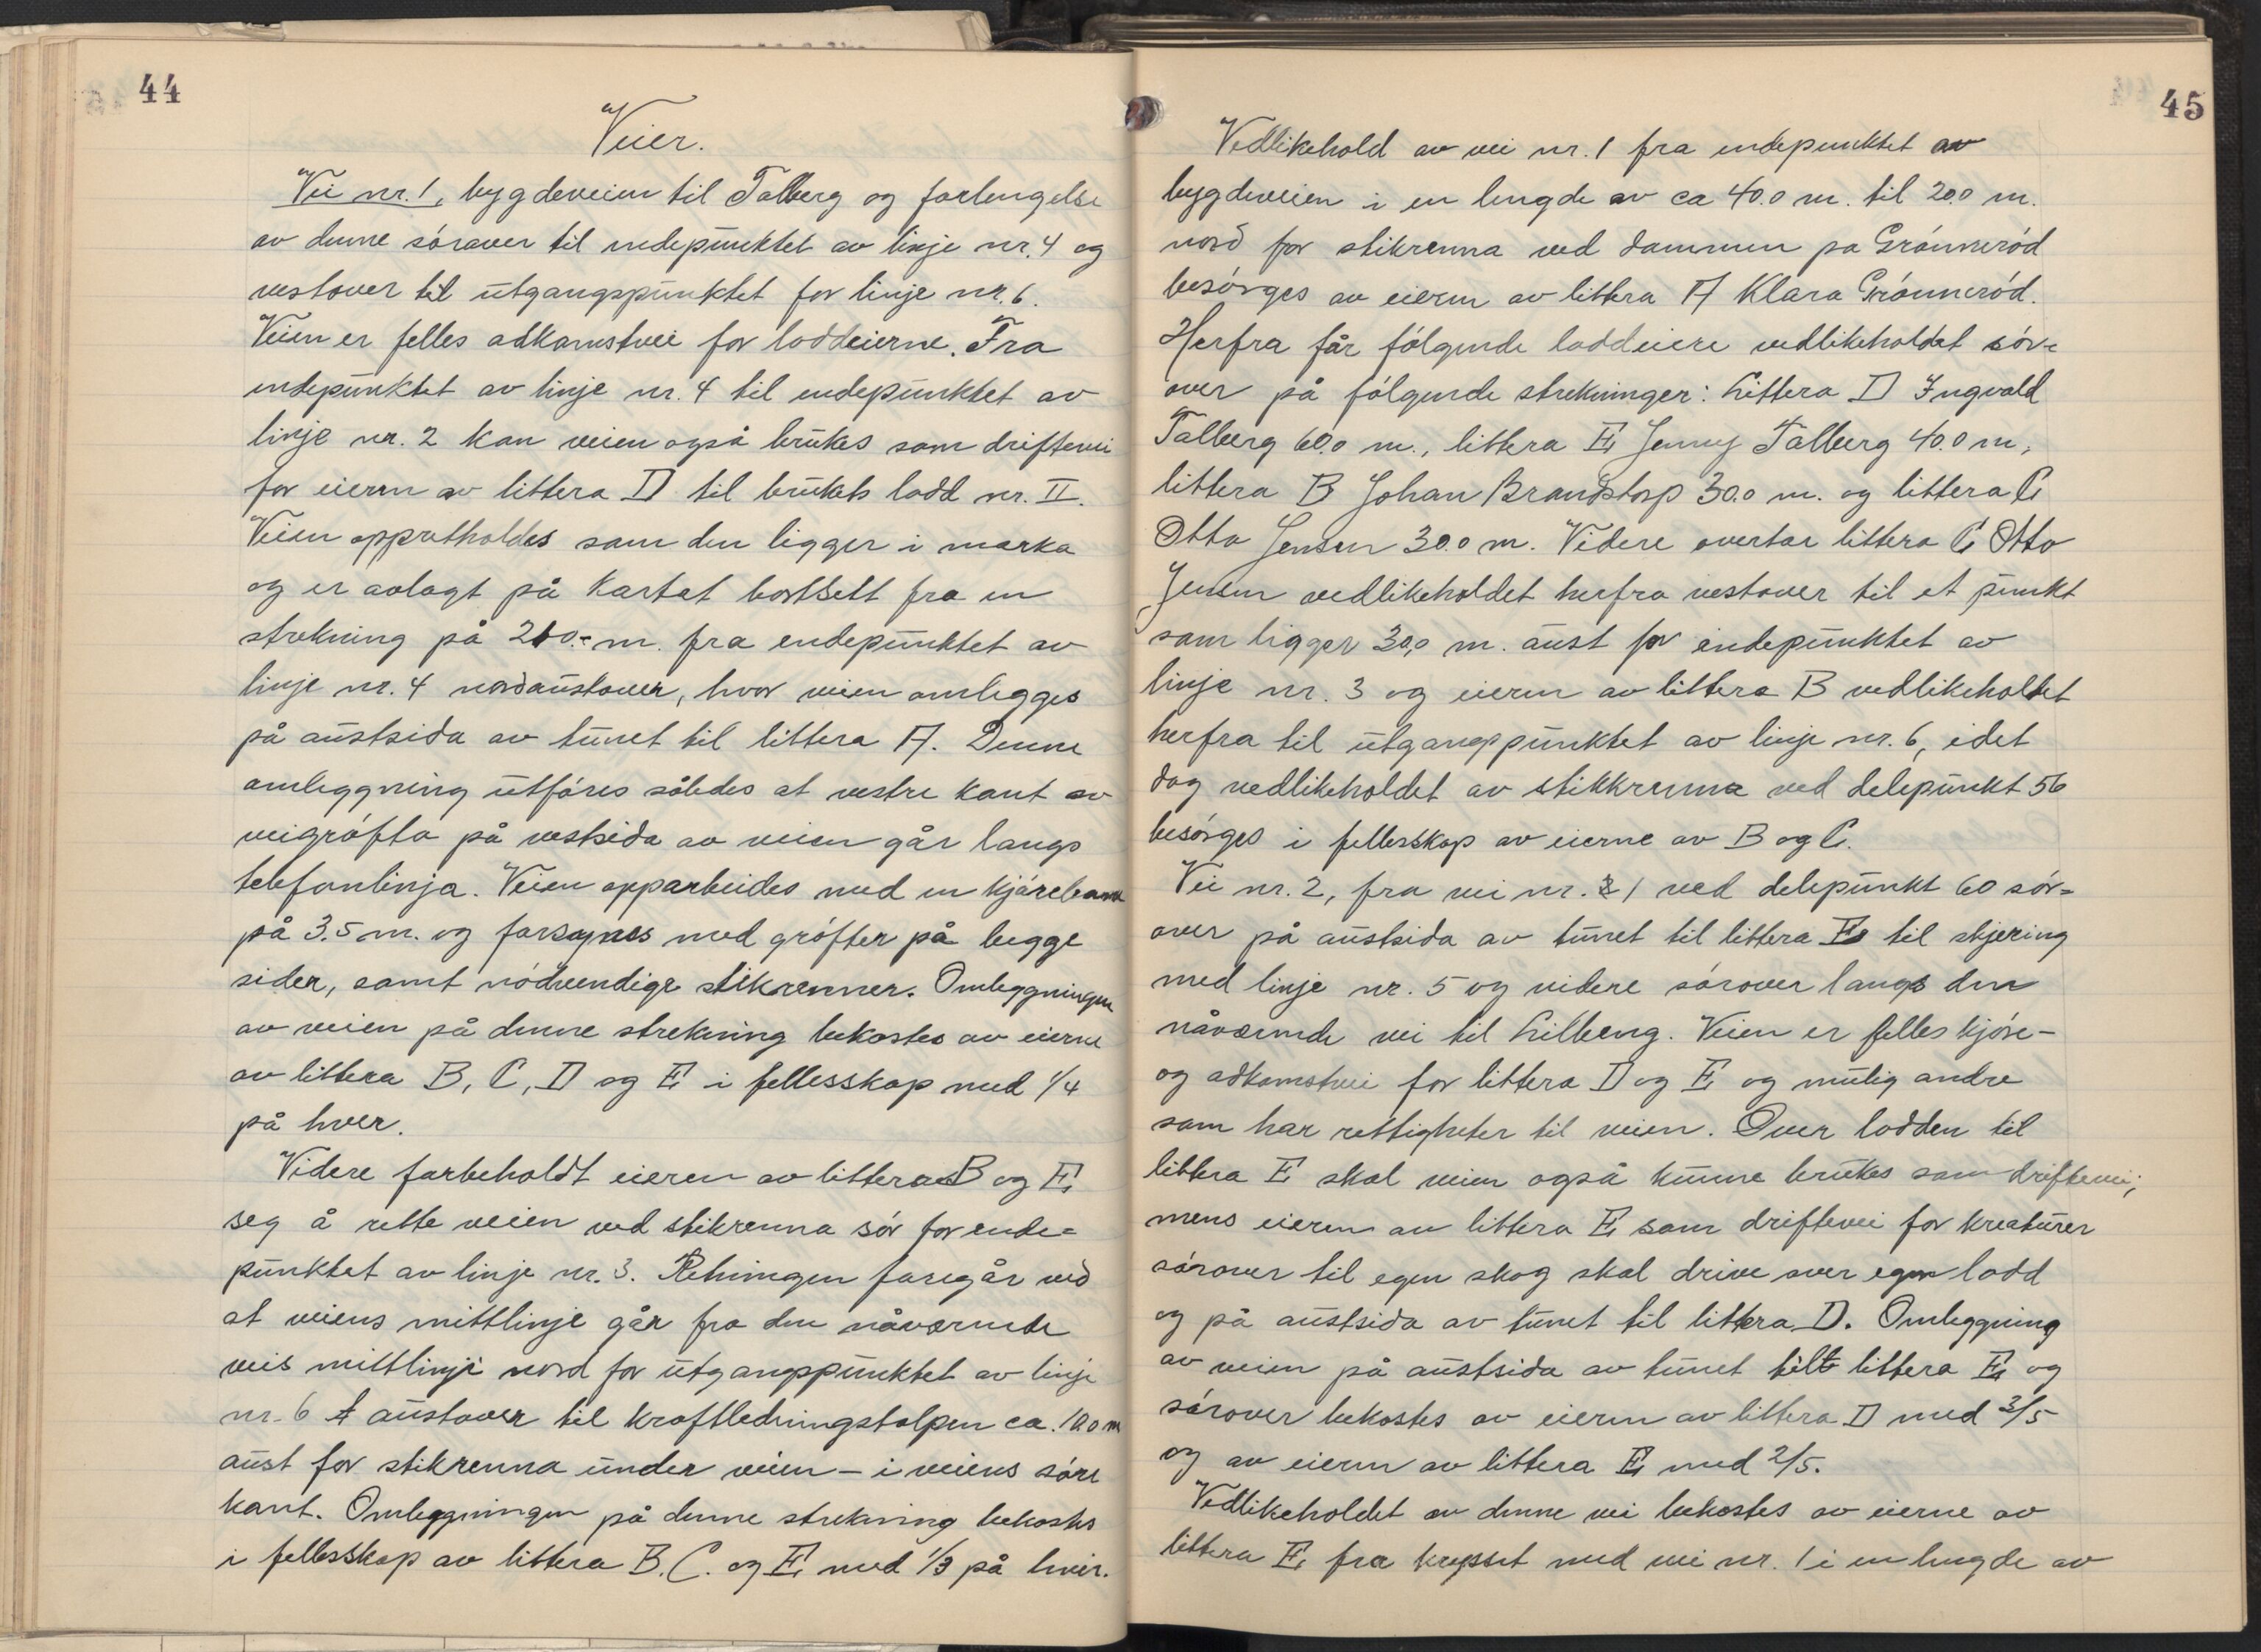 44
Veier.
Vei nr. 1, bygdeveien til Talberg og forlengelse
av denne sórover til endepunktet av linje nr. 4 og
vestover til utgangspunktet for linje nr. 6.
Veien er felles adkomstvei for loddeierne. Fra
endepunktet av linje nr. 4 til endepunktet av
linje nr. 2 kan veien også brukes som driftevei
for eieren av littera D til brukets lodd nr. II.
Veien opprettholdes som den ligger i marka
og er avlagt på kartet bortsett fra en
strekning på 210.- m. fra endepunktet av
linje nr. 4 nordaustover, hvor veien omlegges
på austsida av tunet til littera A. Denne
omleggning utfóres således at vestre kant av
veigrófta på vestsida av veien går langs
telefonlinja. Veien opparbeides med en kjórebane
på 3.5 m. og forsynes med grófter på begge
sider, samt nódvendige stikrenner. Omleggningen
av veien på denne strekning bekostes av eierne
av littera B, C, D og E i fellesskap med 1/4
på hver.
Videre forbeholdt eieren av littera B og E
seg å rette veien ved stikrenna sór for ende=
punktet av linje nr. 3. Retningen foregår ved
at veiens mittlinje går fra den nåværende
veis mittlinje nord for utgangppunktet av linje
nr. 6 austover til kraftledningstolpen ca. 10.0 m
aust for stikrenna under veien – i veiens sóre
kant. Omleggningen på denne strekning bekostes
i fellesskap av littera B. C. og E med 1/3 på hver.
45
Vedlikehold av vei nr. 1 fra endepunktet av
bygdeveien i en lengde av ca 40.0 m. til 20.0 m.
nord for stikrenna ved dammen pa Grónneród
besórges av eieren av littera A Klara Grónneród.
Herfra får fólgende loddeiere vedlikeholdet sór=
over på fólgende strekninger: Littera D Ingvald
Talberg 60.0 m., littera E Jenny Talberg 40.0 m,
littera B Johan Brandstorp 30.0 m. og littera C
Otto Jensen 30.0 m. Videre overtar littera C Otto
Jensen vedlikeholdet herfra vestover til et punkt
som ligger 30,0 m. aust for endepunktet av
linje nr. 3 og eieren av littera B vedlikeholdet
herfra til utgangppunktet av linje nr. 6, idet
dog vedlikeholdet av stikkrenna ved delepunkt 56
besórges i fellesskap av eierne av B og C.
Vei nr. 2, fra vei nr. 1 ved delepunkt 60 sór=
over på austsida av tunet til littera E til skjering
med linje nr. 5 og videre sórover langs den
nåværende vei til Lilleeng. Veien er felles kjóre-
og adkomstvei for littera D og E og mulig andre
som har rettigheter til veien. Over lodden til
littera E skal veien også kunne brukes som driftevei;
mens eieren av littera E som driftevei for kreaturer
sórover til egen skog skal drive over egen lodd
og på austsida av tunet til littera D. Omleggning
av veien på austsida av tunet til littera E og
sórover bekostes av eieren av littera D med 3/5
og av eieren av littera E med 2/5.
Vedlikeholdet av denne vei bekostes av eierne av
littera E fra krysset med vei nr. 1 i en lengde av